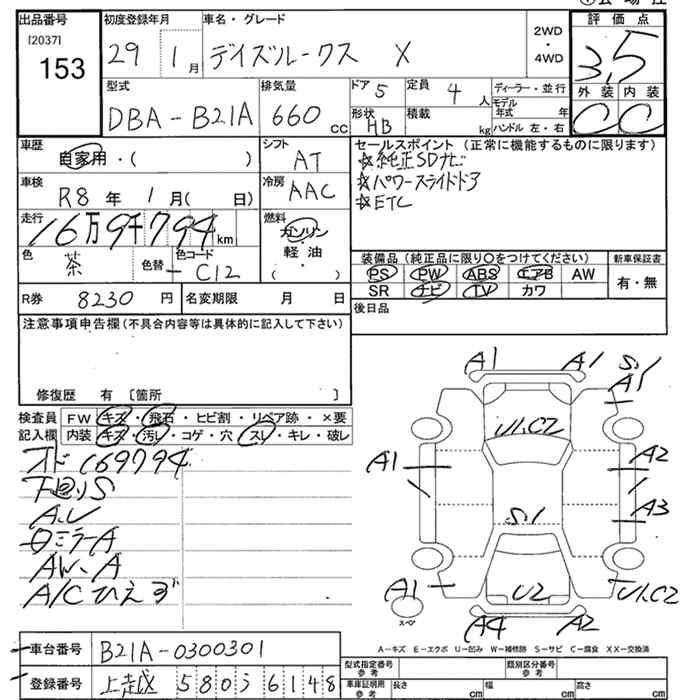 出品番号
[2037]
153
初度登録年月
29 1月
車名・グレード
デイズルークス X
2WD
・
4WD
評価点
3.5
外装 内装
C C
型式
DBA-B21A
排気量
660 cc
ドア 5
定員 4人
形状 HB
積載 kg
ディーラー・並行
モデル年式 年
ハンドル 左・右
車歴
自家用・( )
シフト
AT
車検
R8年 1月( 日)
冷房
AAC
走行
16万9千794 km
燃料
ガソリン
・
軽油
・
( )
色
茶
色替 -
色コード
C12
R券 8230円
名変期限 月 日
セールスポイント (正常に機能するものに限ります)
☆純正SDナビ
☆パワースライドドア
☆ETC
装備品 (純正品に限り〇をつけてください)
PS PW ABS エアB AW
SR ナビ TV カワ
新車保証書
有・無
後日品
注意事項申告欄(不具合内容等は具体的に記入して下さい)
修復歴 有 〔箇所 〕
検査員
記入欄
FW キズ・飛石・ヒビ割・リペア跡・×要
内装 キズ・汚レ・コゲ・穴・スレ・キレ・破レ
オド169794
下廻りS
A.U
ロミラーA
AW.A
A/Cひえず
A1 A1 S.1
A1
U1.C2
A1 A2
A3
S.1
A1 U2 U1.C2
スペア
A4 A2
A-キズ E-エクボ U-凹み W-補修跡 S-サビ C-腐食 XX-交換済
車台番号 B21A-0300301
登録番号 上越 580 う 6148
型式指定番号
参考
類別区分番号
参考
車庫証明用
参考
長さ cm
幅 cm
高さ cm